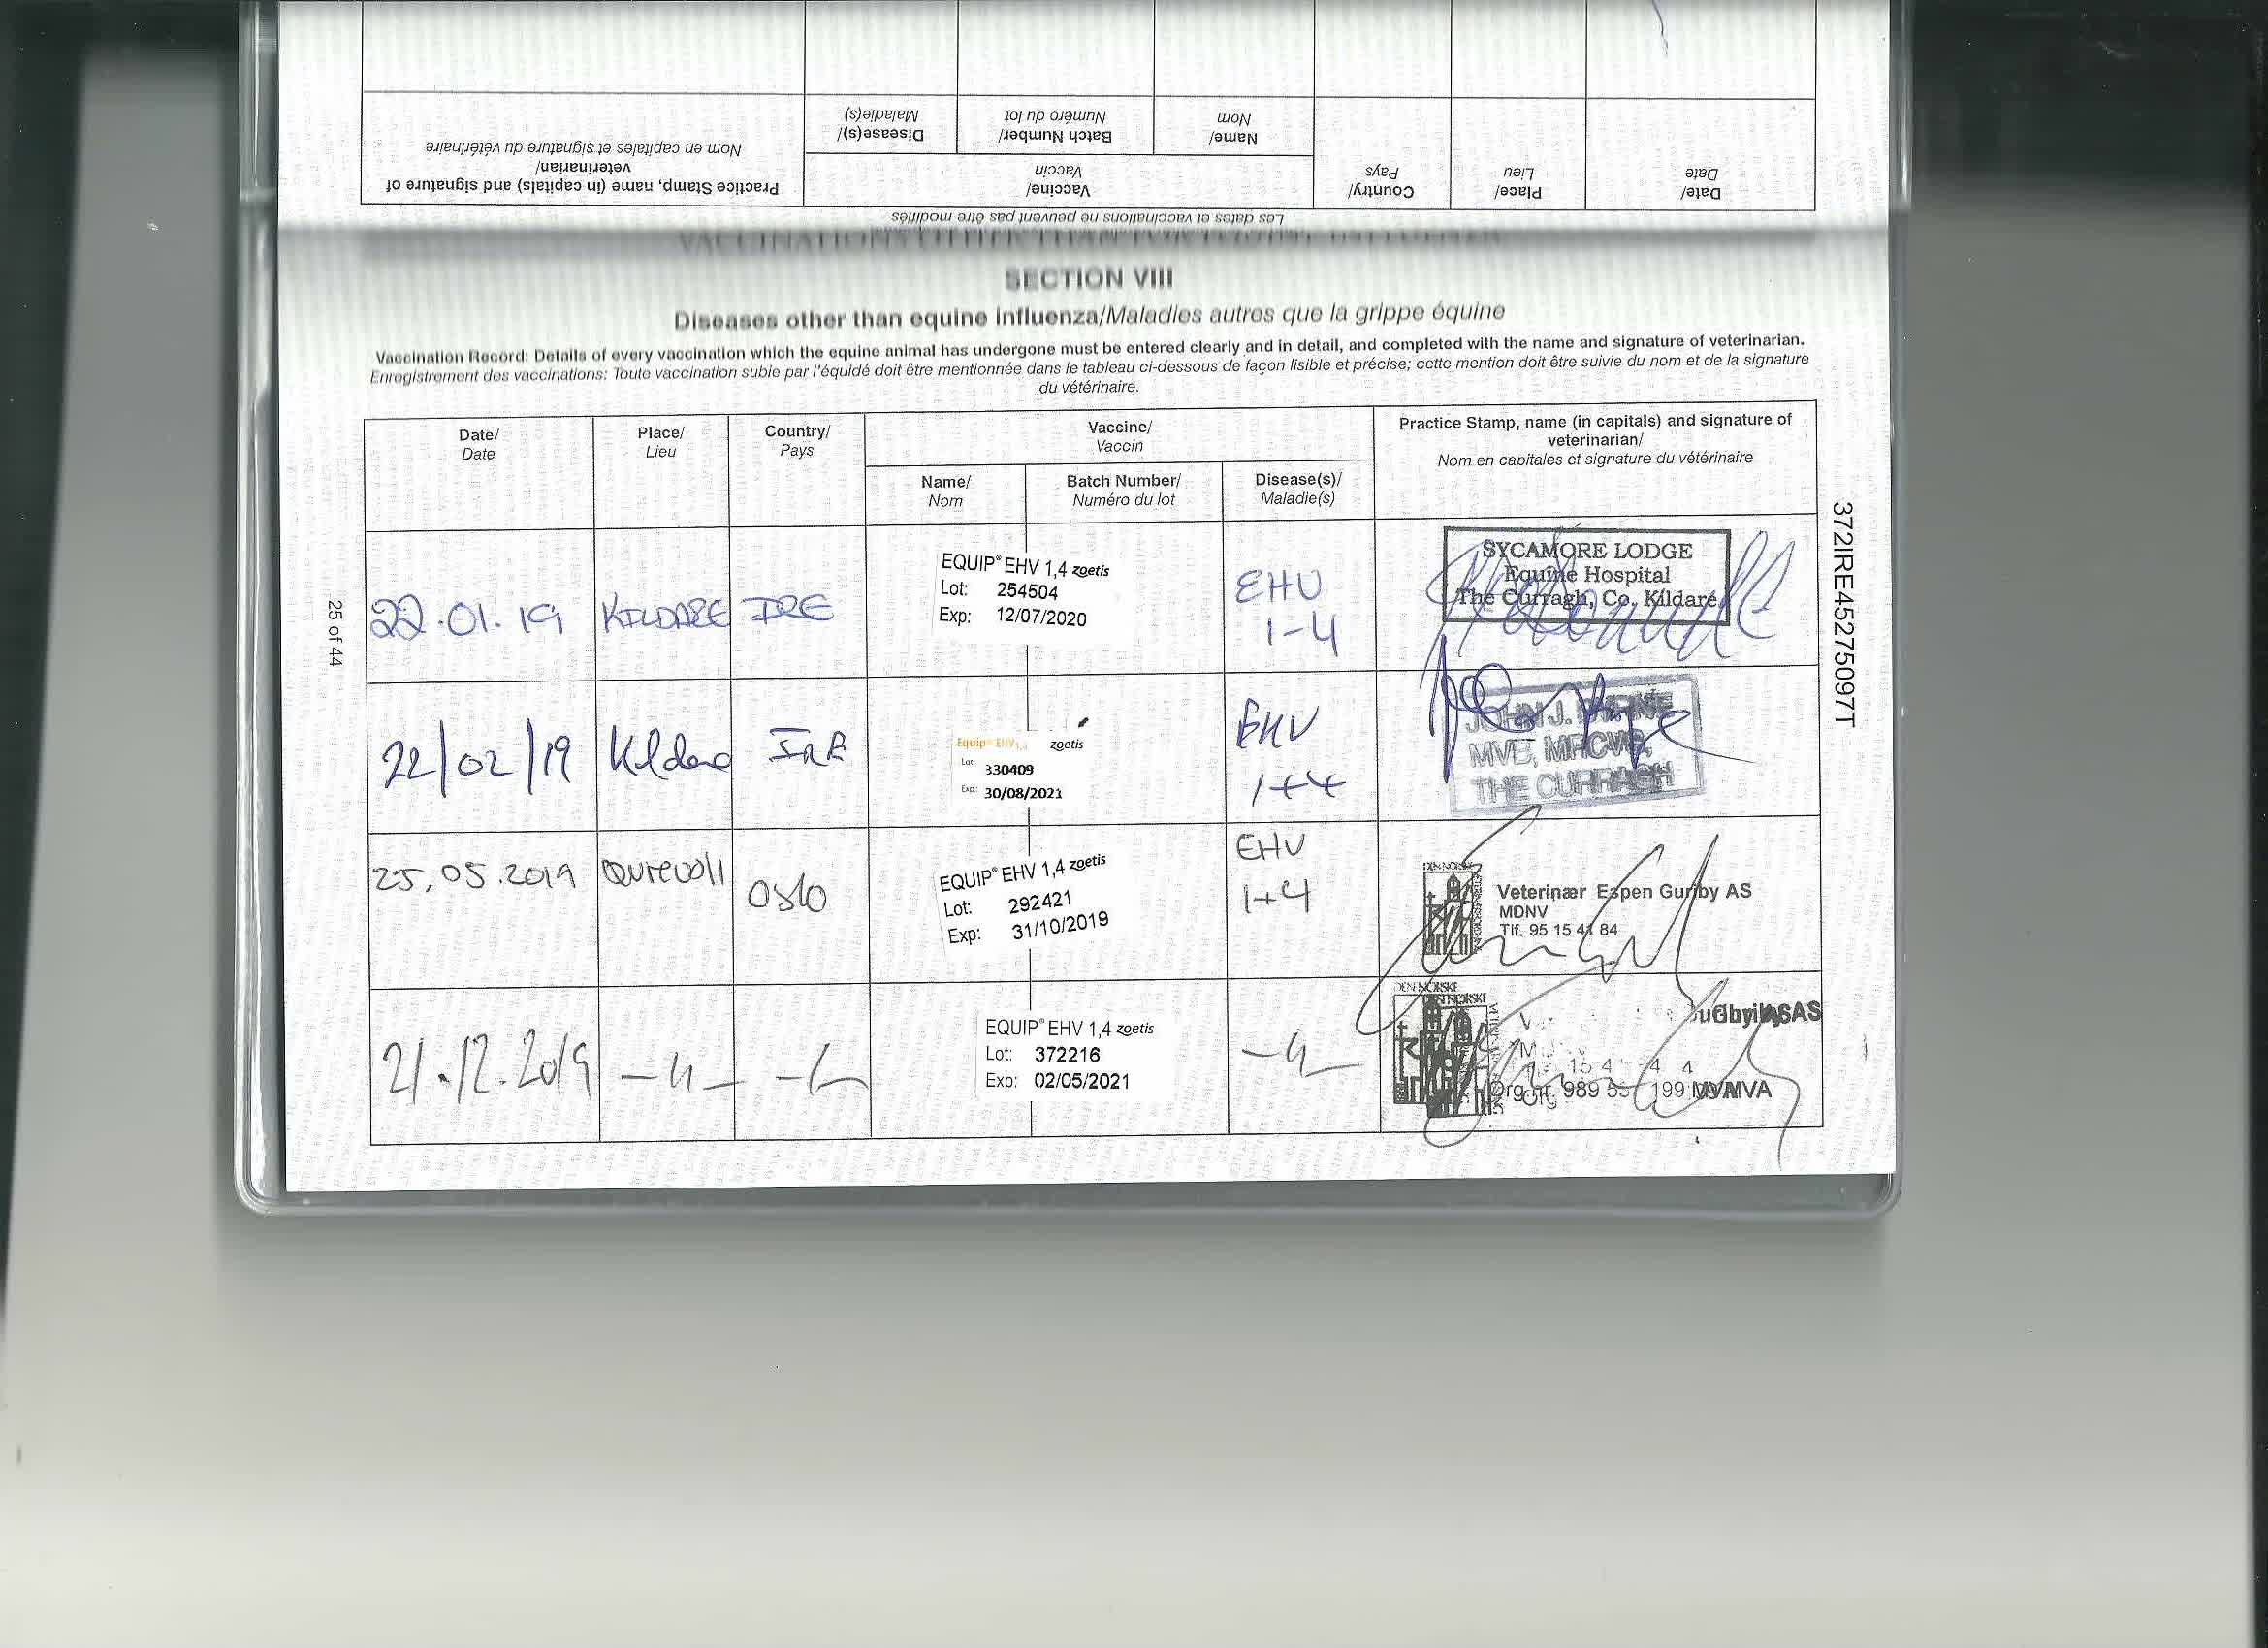 Practice Stamp, name (in capitals) and signature of
veterinarian/
Nom en capitales et signature du vétérinaire
Disease(s)/
Maladie(s)
Batch Number/
Numéro du lot
Name/
Nom
Vaccine/
Vaccin
Country/
Pays
Place/
Lieu
Date/
Date
Les dates et vaccinations ne peuvent pas être modifiés
SECTION VIII
Diseases other than equine influenza/Maladies autres que la grippe équine
Vaccination Record: Details of every vaccination which the equine animal has undergone must be entered clearly and in detail, and completed with the name and signature of veterinarian.
Enregistrement des vaccinations: Toute vaccination subie par l'équidé doit être mentionnée dans le tableau ci-dessous de façon lisible et précise; cette mention doit être suivie du nom et de la signature
du vétérinaire.
Date/
Date
Place/
Lieu
Country/
Pays
Vaccine/
Vaccin
Name/
Nom
Batch Number/
Numéro du lot
Disease(s)/
Maladie(s)
Practice Stamp, name (in capitals) and signature of
veterinarian/
Nom en capitales et signature du vétérinaire
22.01.19 KILDARE IRE
EQUIP® EHV 1,4 zoetis
Lot: 254504
Exp: 12/07/2020
EHV
1-4
SYCAMORE LODGE
Equine Hospital
The Curragh, Co. Kildare
22/02/19 Kildare IRE
Equip® EHV 1,4 zoetis
Lot: 330409
Exp: 30/08/2021
EHV
1+4
JOHN J.
MVB, MRCVS,
THE CURRAGH
25.05.2019 Øvrevoll Oslo
EQUIP® EHV 1,4 zoetis
Lot: 292421
Exp: 31/10/2019
EHV
1+4
Veterinær Espen Gunby AS
MDNV
Tlf. 95 15 41 84
21.12.2019 -"- -"-
EQUIP® EHV 1,4 zoetis
Lot: 372216
Exp: 02/05/2021
-"-
DEN NORSKE
25 of 44
372IRE45275097T